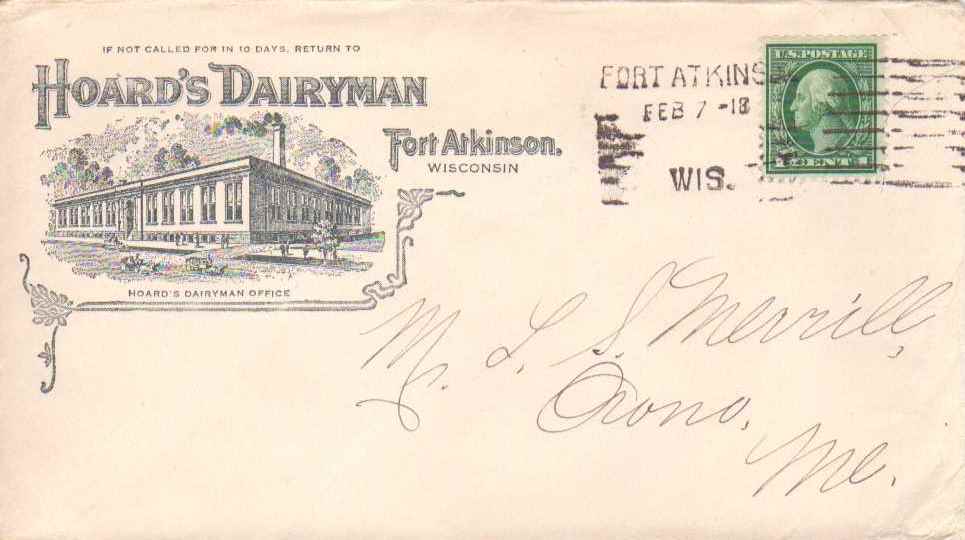 IF NOT CALLED FOR IN 10 DAYS, RETURN TO
HOARD'S DAIRYMAN
Fort Atkinson,
WISCONSIN
HOARD'S DAIRYMAN OFFICE
FORT ATKINS
FEB 7 -18
WIS.
U.S. POSTAGE
CENT
M. L. S. Merrill,
Orono,
Me.